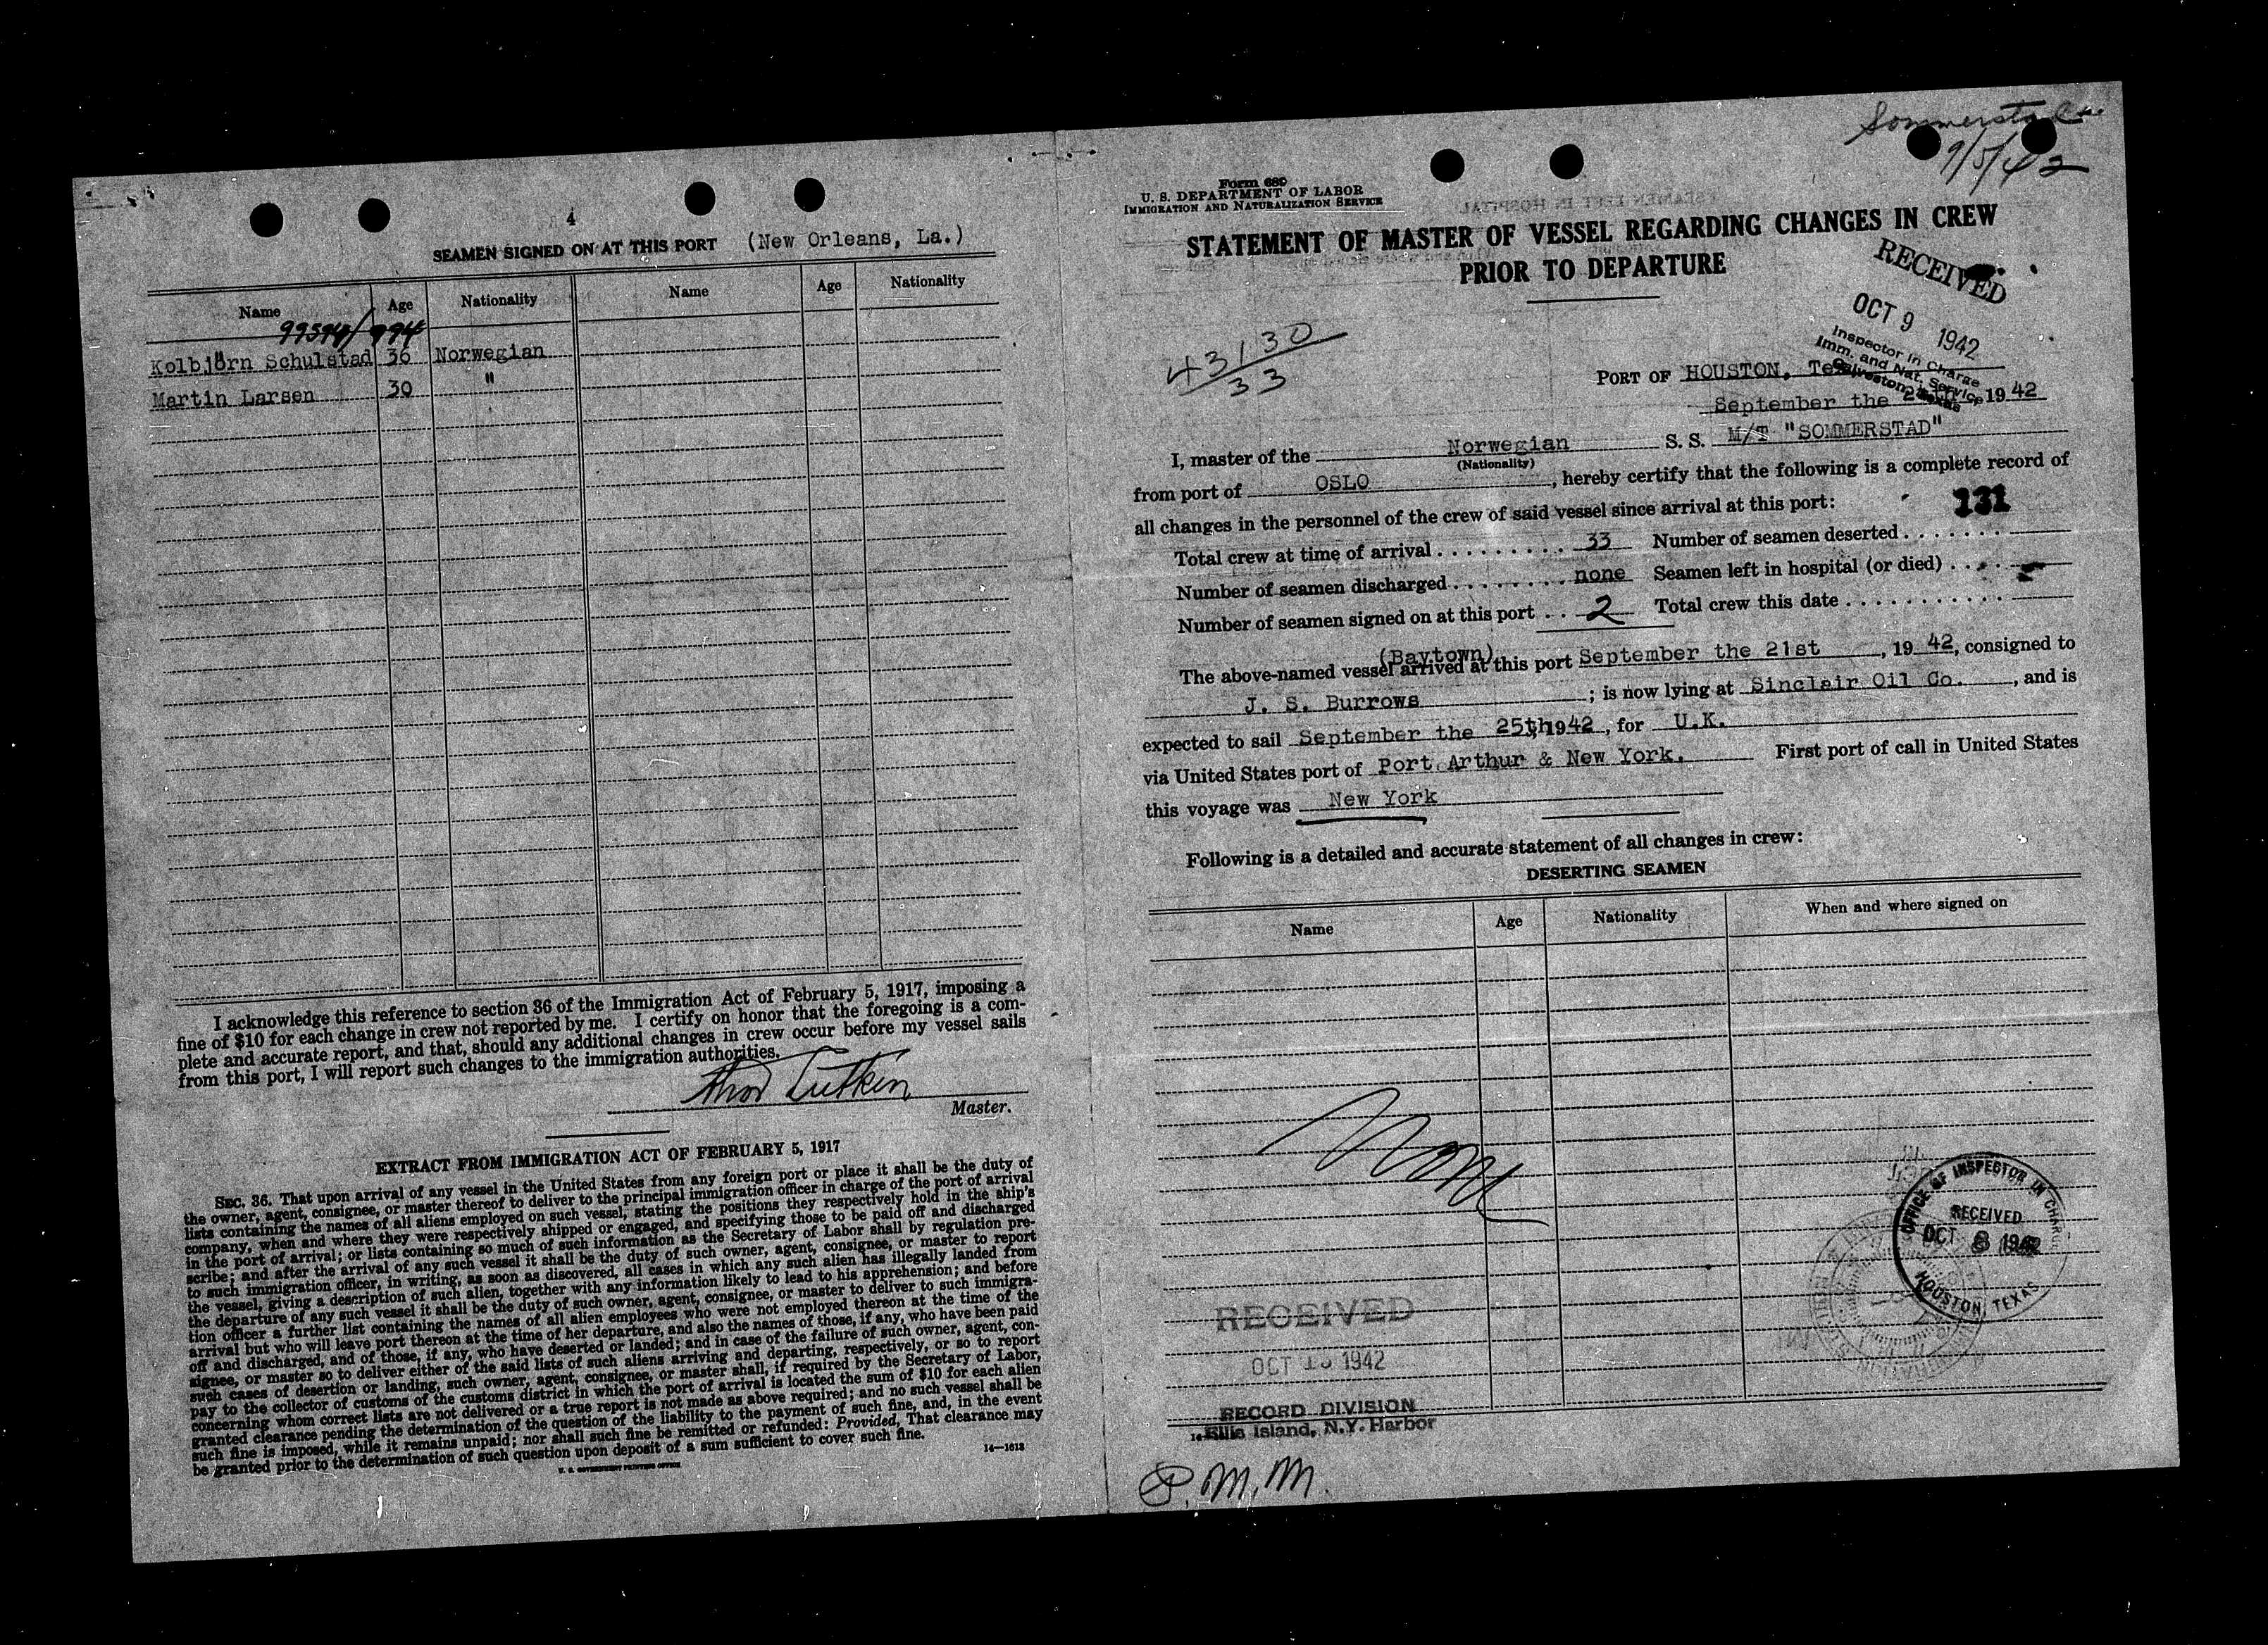 4
SEAMEN SIGNED ON AT THIS PORT (New Orleans, La.)
Name Age Nationality Name Age Nationality
Kolbjörn Schulstad 36 Norwegian
Martin Larsen 30 "
I acknowledge this reference to section 36 of the Immigration Act of February 5, 1917, imposing a
fine of $10 for each change in crew not reported by me. I certify on honor that the foregoing is a com-
plete and accurate report, and that, should any additional changes in crew occur before my vessel sails
from this port, I will report such changes to the immigration authorities.
Master.
EXTRACT FROM IMMIGRATION ACT OF FEBRUARY 5, 1917
SEC. 36. That upon arrival of any vessel in the United States from any foreign port or place it shall be the duty of
the owner, agent, consignee, or master thereof to deliver to the principal immigration officer in charge of the port of arrival
lists containing the names of all aliens employed on such vessel, stating the positions they respectively hold in the ship's
company, when and where they were respectively shipped or engaged, and specifying those to be paid off and discharged
in the port of arrival; or lists containing so much of such information as the Secretary of Labor shall by regulation pre-
scribe; and after the arrival of any such vessel it shall be the duty of such owner, agent, consignee, or master to report
to such immigration officer, in writing, as soon as discovered, all cases in which any such alien has illegally landed from
the vessel, giving a description of such alien, together with any information likely to lead to his apprehension; and before
the departure of any such vessel it shall be the duty of such owner, agent, consignee, or master to deliver to such immigra-
tion officer a further list containing the names of all alien employees who were not employed thereon at the time of the
arrival but who will leave port thereon at the time of her departure, and also the names of those, if any, who have been paid
off and discharged, and of those, if any, who have deserted or landed; and in case of the failure of such owner, agent, con-
signee, or master so to deliver either of the said lists of such aliens arriving and departing, respectively, or so to report
such cases of desertion or landing, such owner, agent, consignee, or master shall, if required by the Secretary of Labor,
pay to the collector of customs of the customs district in which the port of arrival is located the sum of $10 for each alien
concerning whom correct lists are not delivered or a true report is not made as above required; and no such vessel shall be
granted clearance pending the determination of the question of the liability to the payment of such fine, and, in the event
such fine is imposed, while it remains unpaid; nor shall such fine be remitted or refunded: Provided, That clearance may
be granted prior to the determination of such question upon deposit of a sum sufficient to cover such fine.
U. S. GOVERNMENT PRINTING OFFICE 14—1613
9/5/42
Form 680
U. S. DEPARTMENT OF LABOR
IMMIGRATION AND NATURALIZATION SERVICE
STATEMENT OF MASTER OF VESSEL REGARDING CHANGES IN CREW
PRIOR TO DEPARTURE
RECEIVED
OCT 9 1942
Inspector in Charge
Imm. and Nat. Service
Galveston, Texas
43130
33
PORT OF HOUSTON,
September the 1942
I, master of the Norwegian S. S. M/T "SOMMERSTAD"
(Nationality)
from port of OSLO, hereby certify that the following is a complete record of
all changes in the personnel of the crew of said vessel since arrival at this port:
131
Total crew at time of arrival 33 Number of seamen deserted
Number of seamen discharged none Seamen left in hospital (or died)
Number of seamen signed on at this port 2 Total crew this date
(Baytown)
The above-named vessel arrived at this port September the 21st, 1942, consigned to
J. S. Burrows; is now lying at Sinclair Oil Co., and is
expected to sail September the 25th 1942, for U.K.
via United States port of Port Arthur & New York. First port of call in United States
this voyage was New York
Following is a detailed and accurate statement of all changes in crew:
DESERTING SEAMEN
Name Age Nationality When and where signed on
None
OFFICE OF INSPECTOR IN CHARGE
RECEIVED
OCT 8 1942
HOUSTON, TEXAS
RECEIVED
OCT 1942
RECORD DIVISION
Ellis Island, N.Y. Harbor
P.M.M.